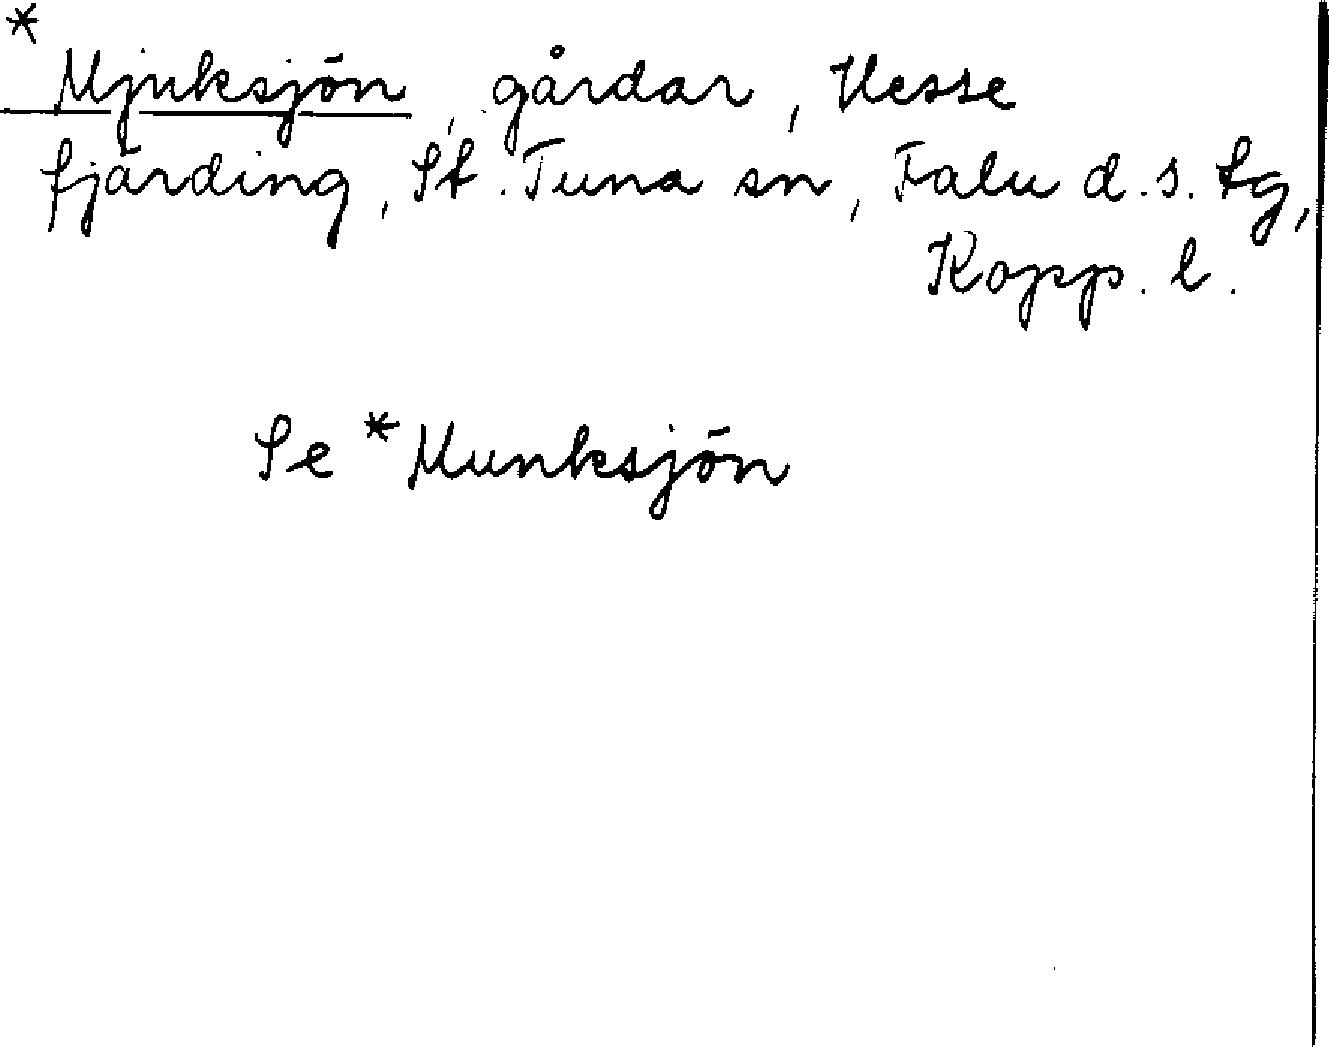 * Mjuksjön, gårdar, Hesse
fjärding, St. Tuna sn, Falu d. s. tg,
Kopp. l.
Se * Munksjön